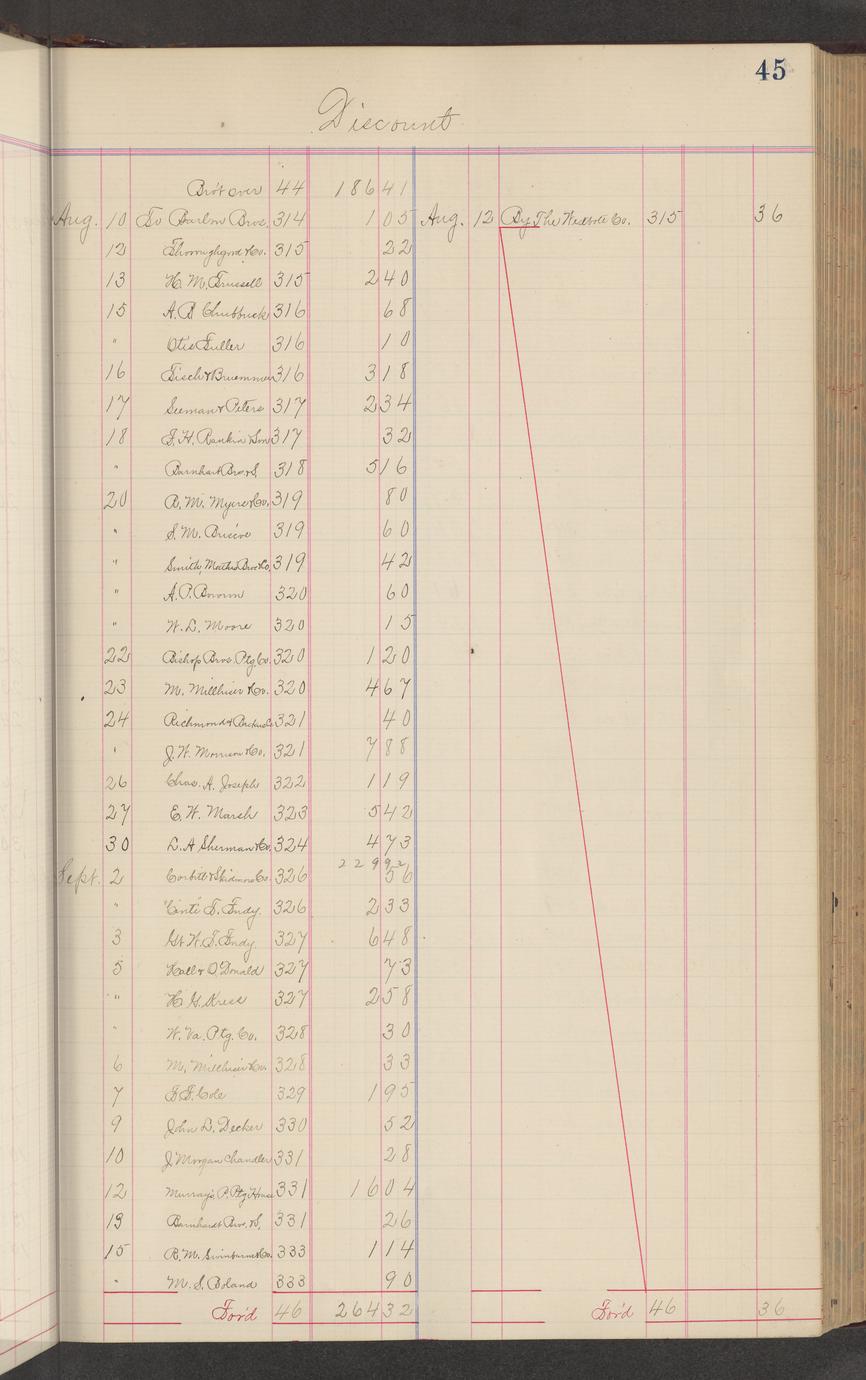 45
Discount
Bro't over 44 186 41
Aug. 10 To Barlow Bros. 314 1 05 Aug. 12 By The Co. 315 36
12 Thoroughgood & Co. 315 22
13 H. M. Trussell 315 2 40
15 A. B. Chubbuck 316 68
" Otis Fuller 316 10
16 Tisch & 316 3 18
17 Seeman & Peters 317 2 34
18 H. Rankin & Son 317 32
" Barnhart Bros. & S. 318 5 16
20 R. M. Myers & Co. 319 80
" S. M. Briscoe 319 60
" Smith, Bros Co. 319 42
" A. P. 320 60
" W. L. Moore 320 15
22 Bishop Bros. Ptg. Co. 320 1 20
23 M. Millhiser & Co. 320 4 67
24 Richmond & 321 40
" J. W. Morrison & Co. 321 7 88
26 Chas. A. Joseph 322 1 19
27 E. W. Marsh 323 5 42
30 L. A Sherman & Co. 324 4 73
229 92
Sept. 2 Corbitt & Skidmore Co. 326 56
" Cent'l T. Fndy. 326 2 33
3 Gt. W. T. Fndy. 327 6 48
5 Hall & O'Donald 327 73
" H. G. Kress 327 2 58
" W. Va. Ptg. Co. 328 30
6 M. Millhiser & Co. 328 33
7 Cole 329 1 95
9 John L. Decker 330 52
10 J. Morgan Chandler 331 28
12 Murray's P. Ptg House 331 16 04
13 Barnhardt Bros. & S. 331 26
15 R. M. Swinburne & Co. 333 1 14
" M. S. Boland 333 90
For'd 46 264 32 For'd 46 36